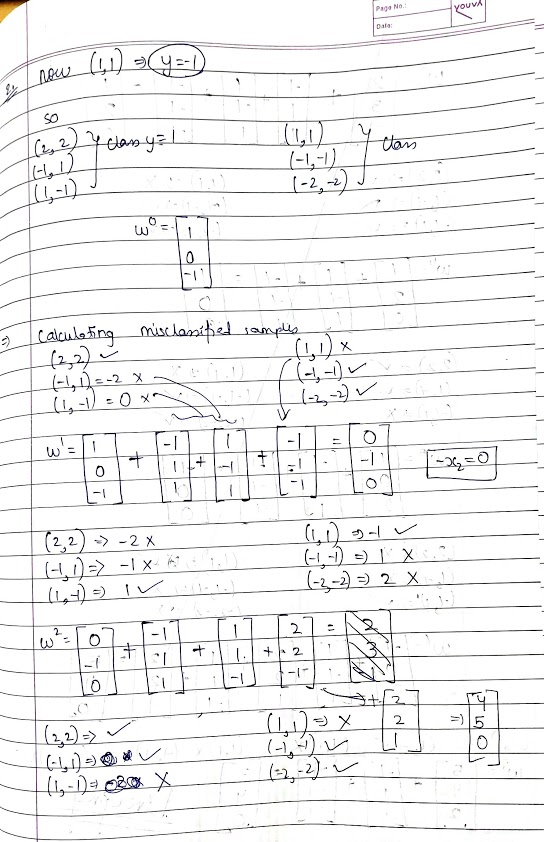 Page No.:
Date:
YOUVA
now (1,1) ⇒ y=-1
so
(2, 2)
(-1, 1) } class y = 1
(1, -1)
(1, 1)
(-1, -1) } class
(-2, -2)
w⁰ = [1 0 -1]
⇒ Calculating misclassified samples
(2,2) ✓
(-1,1) = -2 x
(1,-1) = 0 x
(1,1) x
(-1,-1) ✓
(-2,-2) ✓
w¹ = [1 0 -1] + [-1 1 1] + [1 -1 1] + [-1 -1 -1] = [0 -1 0] -x₂=0
(2,2) ⇒ -2 x
(-1,1) ⇒ -1 x
(1,-1) ⇒ 1 ✓
(1,1) ⇒ -1 ✓
(-1,-1) ⇒ 1 x
(-2,-2) ⇒ 2 x
w² = [0 -1 0] + [-1 1 1] + [1 1 -1] + [2 2 -1] = [2 3 -1]
+ [2 2 1] ⇒ [4 5 0]
(2,2) ⇒ ✓
(-1,1) ⇒ ✓
(1,-1) ⇒ X
(1,1) ⇒ X
(-1,-1) ✓
(-2,-2) ✓